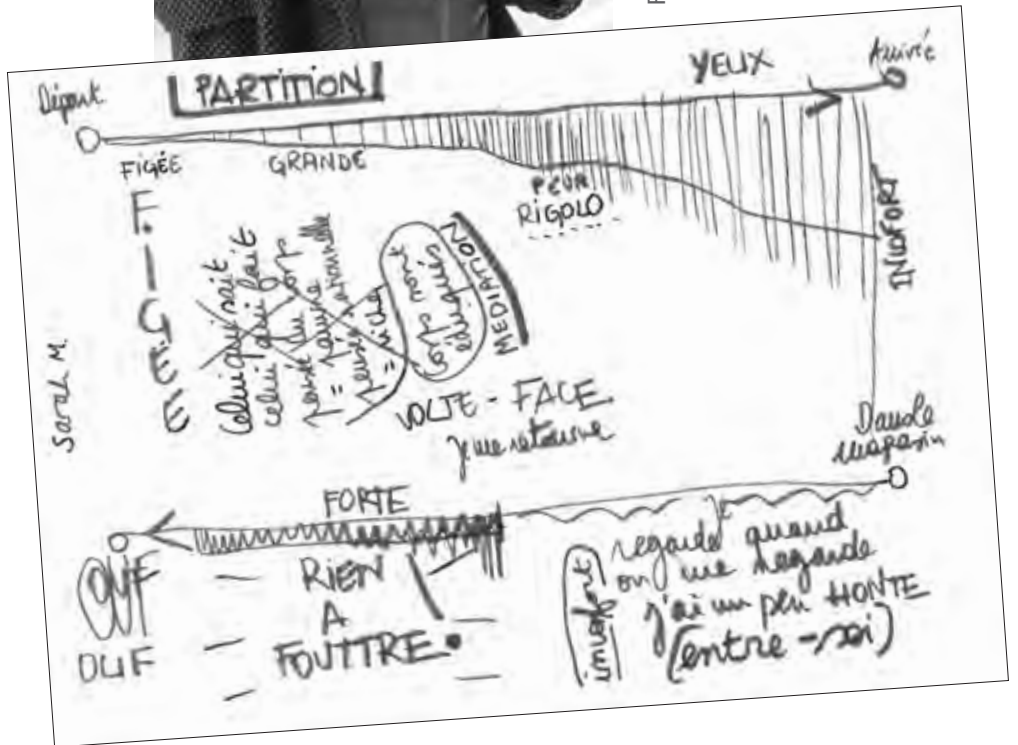 Départ
PARTITION
YEUX
Arrivée
FIGÉE
GRANDE
PEUR
RIGOLO
INCONFORT
F.IGÉE
Celui qui sait
celui qui fait
pensée du corps
= pauvre
pensée rationnelle
= riche
corps non
éduqués
MEDIATION
Sarah M.
VOLTE-FACE
je me retourne
Dans le
magasin
FORTE
OUF
OUF
RIEN
A
FOUTTRE.
inconfort
regarde quand
on me regarde
j'ai un peu HONTE
(entre-soi)